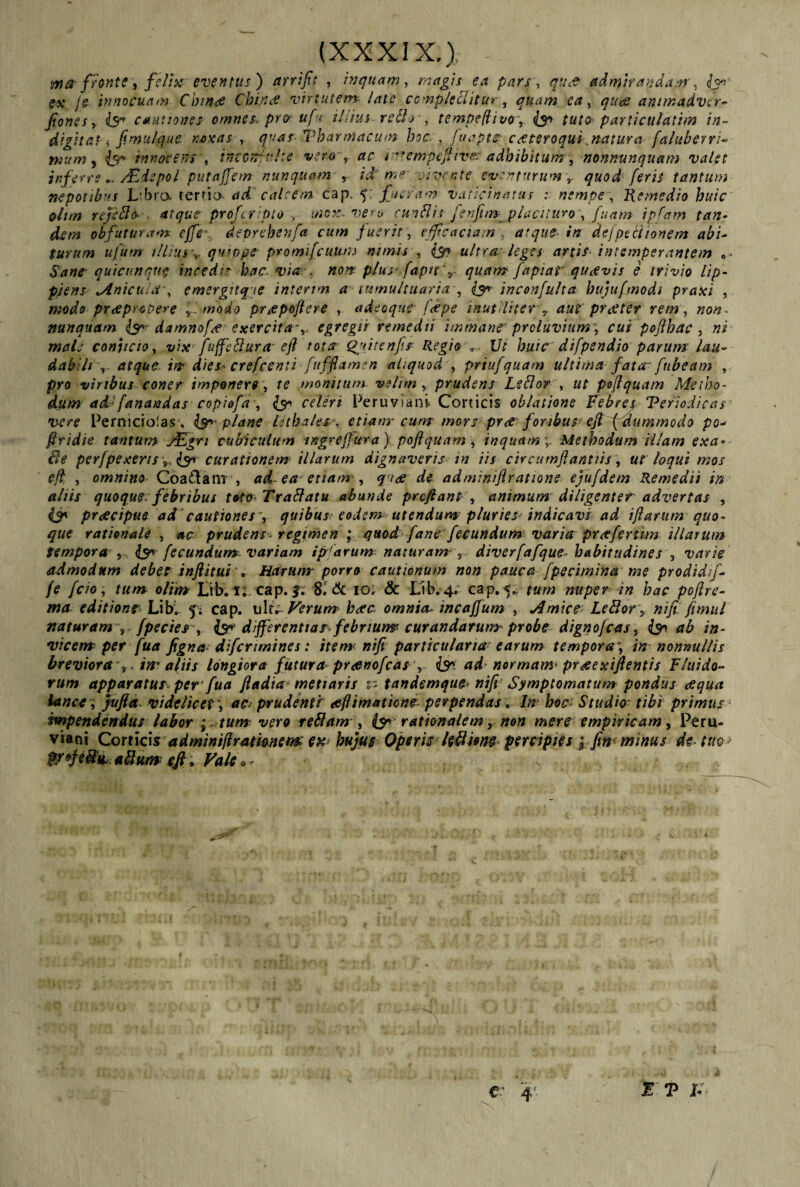 (XXXIX.)
ma fronte, felix eventus) arrisit, inquam, magis ea pars, quæ admirandam, &
ex se innocuam Chinæ Chinæ virtutem late complectitur, quam ea, quæ animadver-
siones, & cautiones omnes pro usu illius recto, tempestivo, & tuto particulatim in-
digitat, simulque noxas, quas Pharmacum hoc, suapte cæteroqui natura saluberri-
mum, & innocens, inconsulte vero, ac intempestive adhibitum, nonnunquam valet
inferre. Ædepol putassem nunquam, id me vivente eventurum, quod seris tantum
nepotibus Libro tertio ad calcem cap. 5. fueram vaticinatus: nempe, Remedio huic
olim rejecto, atque proscripto, mox vero cunctis sensim placituro, suam ipsam tan-
dem obfuturam esse deprehensa cum fuerit, efficaciam, atque in despectionem abi-
turum usum illius, quippe promiscuum nimis, & ultra leges artis intemperantem.
Sane quicunque incedit hac via, non plus sapit, quam sapiat quævis è trivio lip-
piens Anicula, emergitque interim a tumultuaria, & inconsulta hujusmodi praxi,
modo præpropere, modo præpostere, adeoque sæpe inutiliter, aut præter rem, non-
nunquam & damnosæ exercita, egregii remedii immane proluvium, cui posthac, ni
male conjicio, vix suffectura est tota Quitensis Regio. Ut huic dispendio parum lau-
dabili, atque in dies crescenti sufflamen aliquod, priusquam ultima fata subeam,
pro viribus coner imponere, te monitum velim, prudens Lector, ut postquam Metho-
dum ad sanandas copiosa, & celeri Peruviani Corticis oblatione Febres Periodicas
vere Perniciosas, & plane lethales, etiam cum mors præ foribus est (dummodo po-
stridie tantum Ægri cubiculum ingressura) postquam, inquam, Methodum illam exa-
cte perspexeris, & curationem illarum dignaveris in iis circumstantiis, ut loqui mos
est, omnino Coactam, ad ea etiam, quæ de administratione ejusdem Remedii in
aliis quoque febribus toto Tractatu abunde prestant, animum diligenter advertas,
& præcipue ad cautiones, quibus eodem utendum pluries indicavi ad istarum quo-
que rationale, ac prudens regimen; quod sane secundum varia præsertim illarum
tempora, & secundum variam ipsarum naturam, diversasque habitudines, varie
admodum debet institui. Harum porro cautionum non pauca specimina me prodidis-
se scio, tum olim Lib. 1. cap. 3. 8. & 10. & Lib. 4. cap. 5. tum nuper in hac postre-
ma editione Lib. 5. cap. ult. Verum hæc omnia incassum, Amice Lector, nisi simul
naturam, species, & differentias febrium curandarum probe dignoscas, & ab in-
vicem per sua signa discrimines: item nisi particularia earum tempora, in nonnullis
breviora, in aliis longiora futura prænoscas, & ad normam præexistentis Fluido-
rum apparatus per sua stadia metiaris; tandemque nisi Symptomatum pondus æqua
lance, justa videlicet, ac prudenti æstimatione perpendas. In hoc Studio tibi primus
impendendus labor; tum vero rectam, & rationalem, non mere empiricam, Peru-
viani Corticis administrationem ex hujus Operis lectione percipies; sin minus de tuo
profectu actum est. Vale.
c 4 EPI-